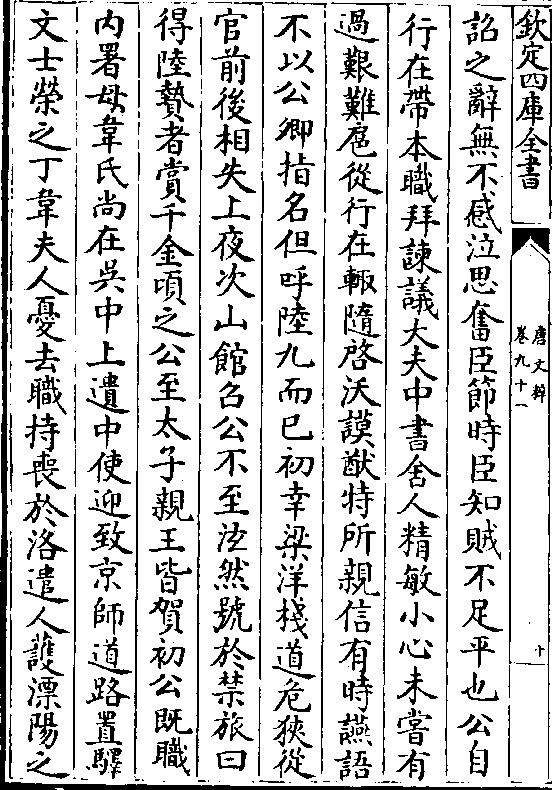 欽定四庫全書
唐文粹
卷九十一
十
詔之辭無不感泣思奮臣節時臣知賊不足平也公自
行在帶本職拜諫議大夫中書舍人精敏小心未嘗有
過艱難扈從行在輙隨啓沃謨猷特所親信有時讌語
不以公卿指名但呼陸九而已初幸梁洋棧道危狹從
官前後相失上夜次山館召公不至泫然號於禁旅曰
得陸贄者賞千金頃之公至太子親王皆賀初公既職
内署母韋氏尚在吳中上遣中使迎致京師道路置驛
文士榮之丁韋夫人憂去職持喪於洛遣人護溧陽之